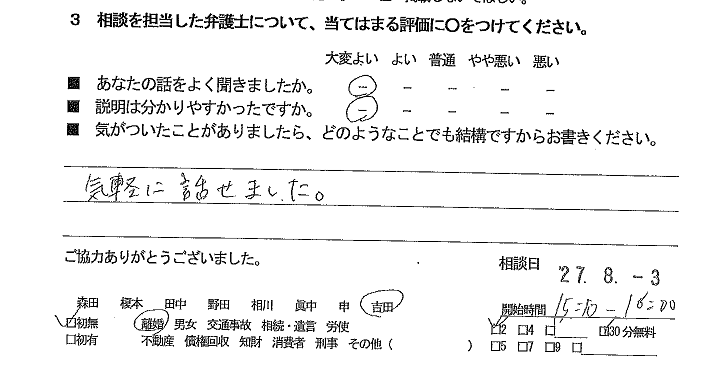 3 相談を担当した弁護士について、当てはまる評価に〇をつけてください。
大変よい よい 普通 やや悪い 悪い
■ あなたの話をよく聞きましたか。 － － － － －
■ 説明は分かりやすかったですか。 － － － － －
■ 気がついたことがありましたら、どのようなことでも結構ですからお書きください。
気軽に話せました。
ご協力ありがとうございました。
相談日 '27. 8. -3
森田 榎本 田中 野田 相川 眞中 申 吉田
開始時間 15:10 - 16:00
□初無 離婚 男女 交通事故 相続・遺言 労使
□2 □4 □ □30分無料
□初有 不動産 債権回収 知財 消費者 刑事 その他 ( )
□5 □7 □9 □